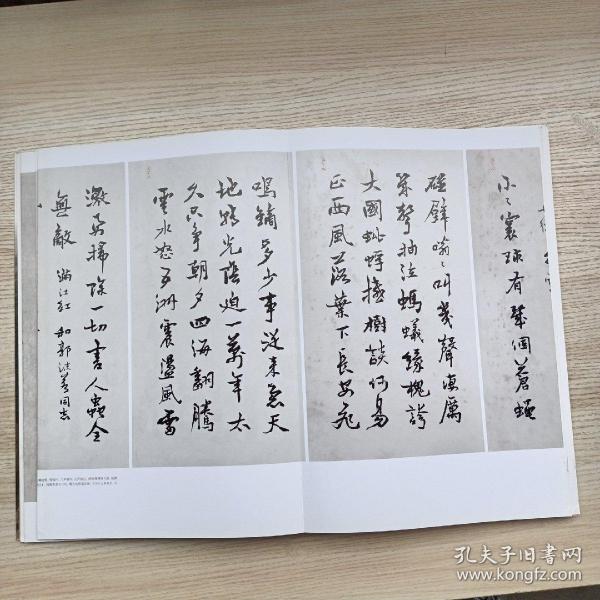 小〻寰球有幾個蒼蠅
碰壁嗡〻叫幾聲凄厲
幾聲抽泣螞蟻緣槐誇
大國蚍蜉撼樹談何易
正西風落葉下長安飛
鳴鏑多少事從來急天
地轉光陰迫一萬年太
久只爭朝夕四海翻騰
雲水怒五洲震盪風雷
激要掃除一切害人蟲全
無敵 滿江紅 和郭沫若同志
孔夫子旧书网
www.kongfz.com